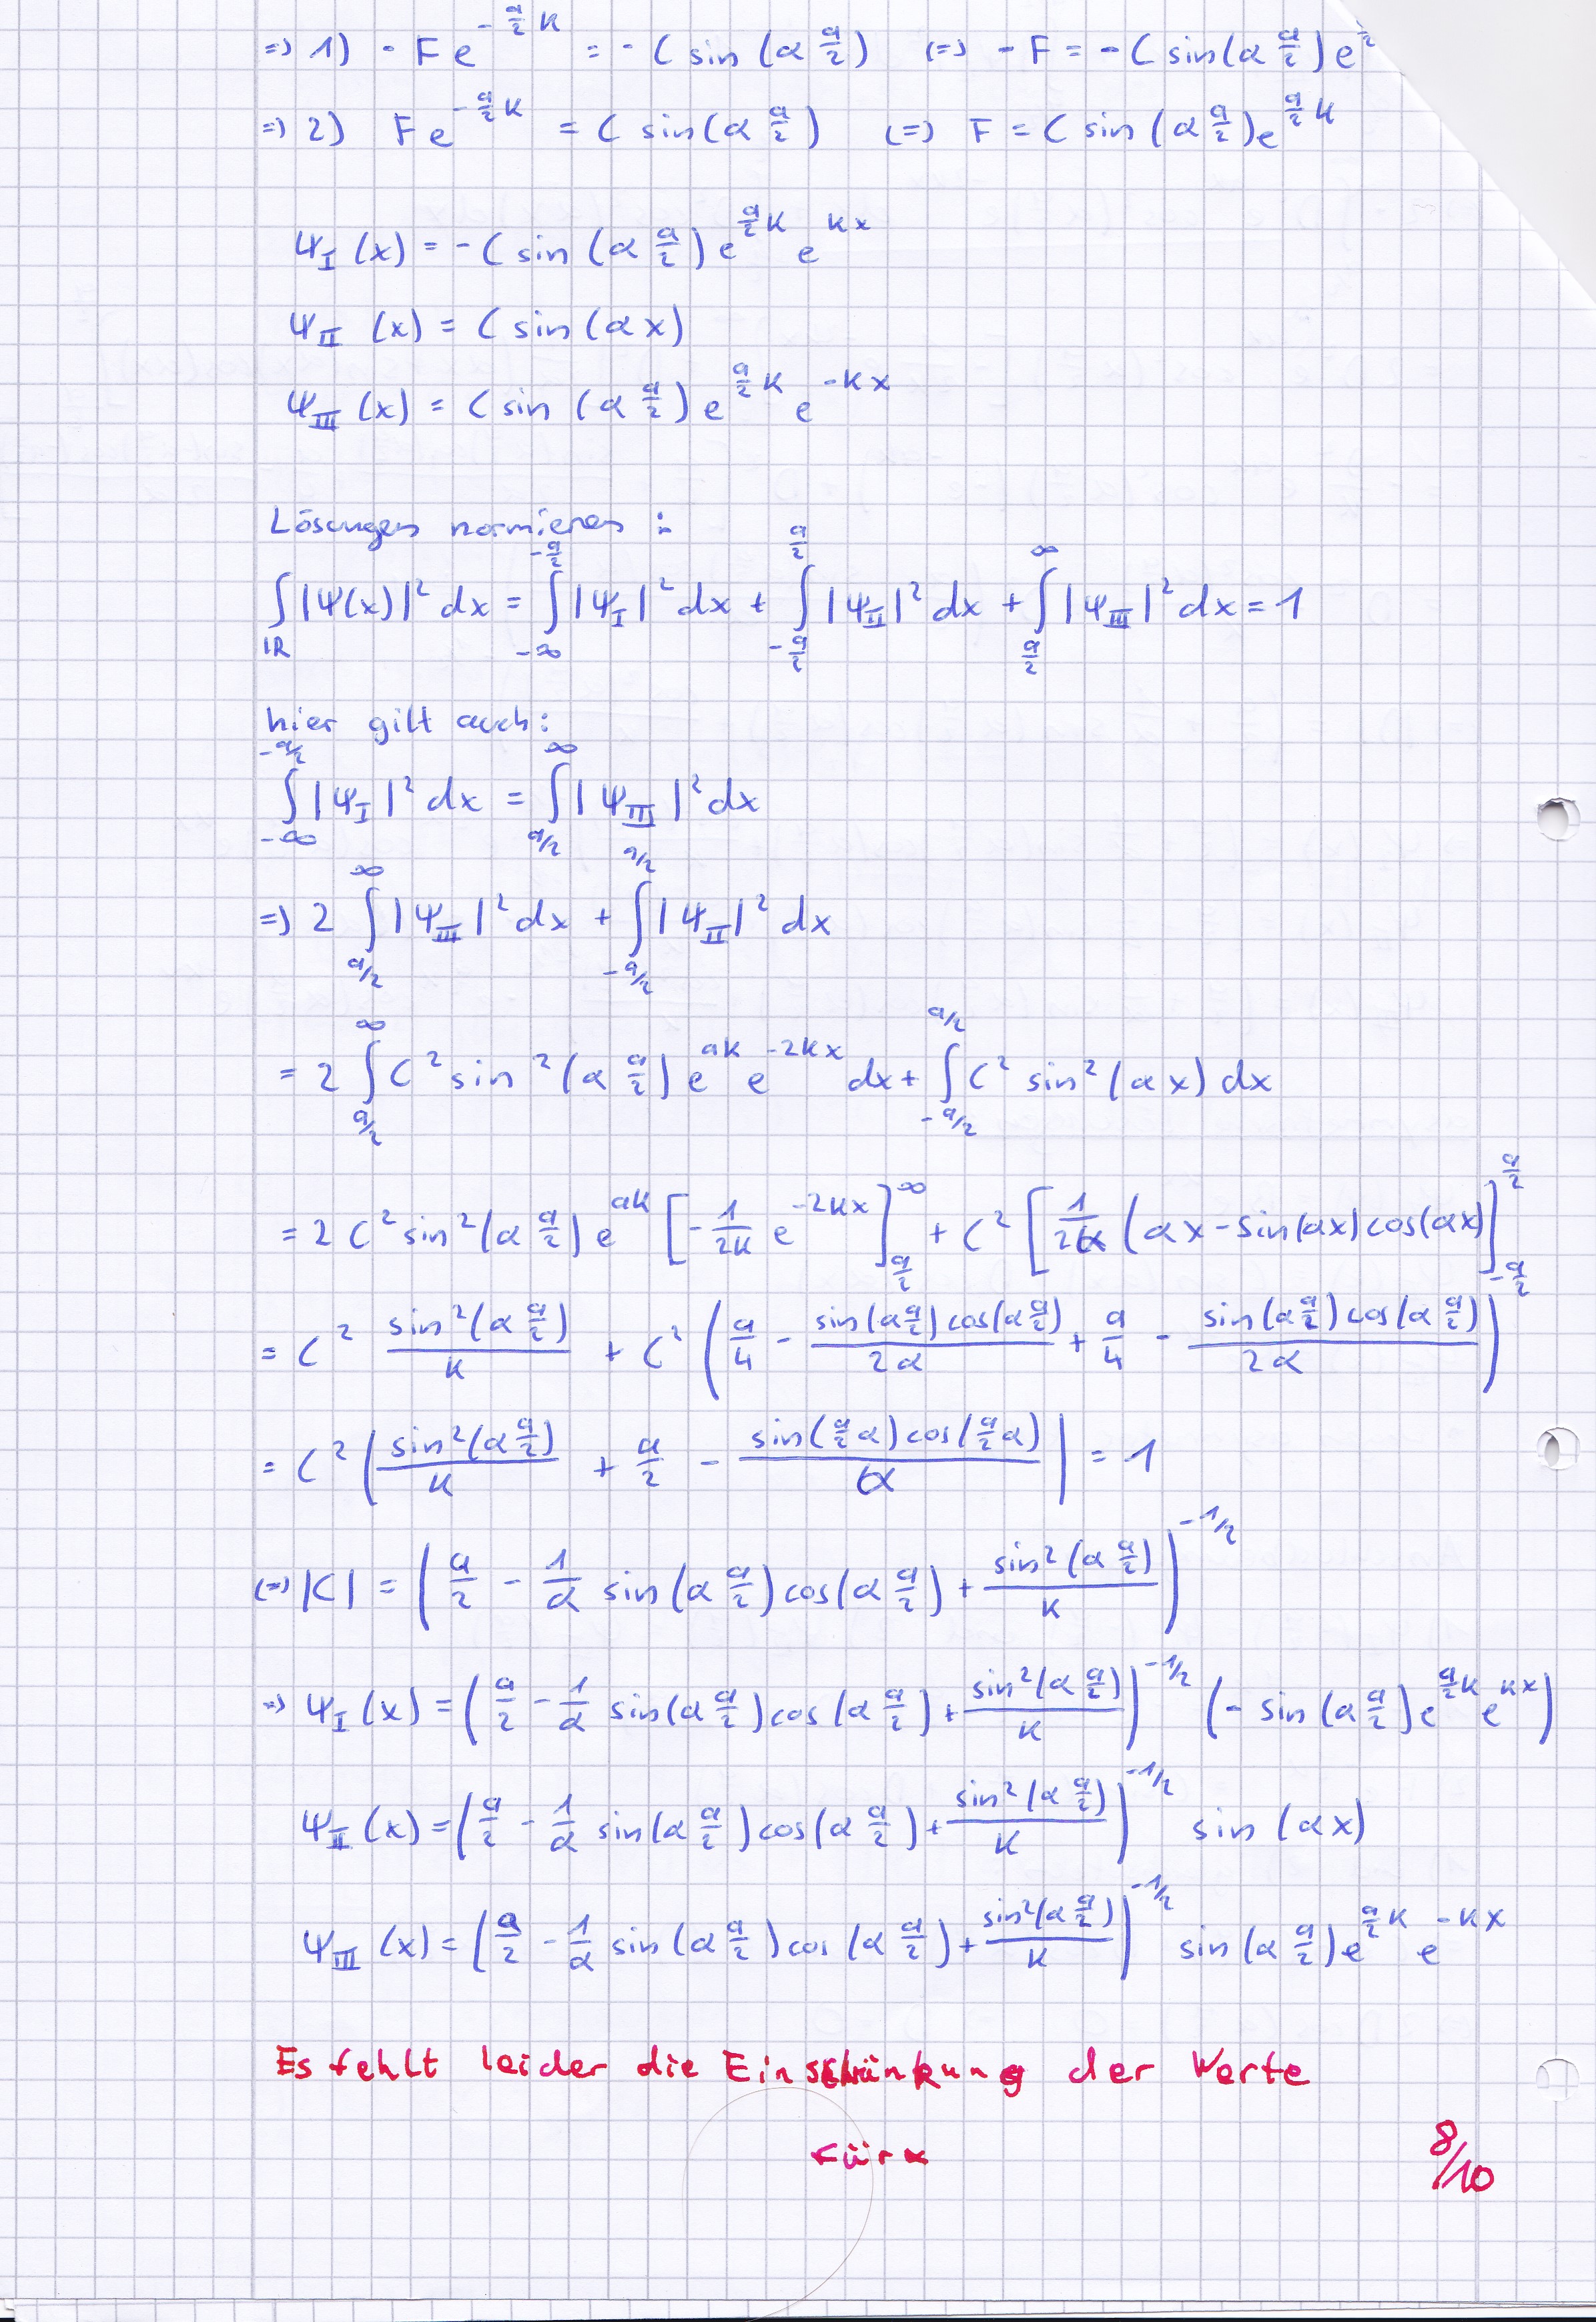 => 1) - F e^{-\frac{a}{2} k} = - C sin (α \frac{a}{2}) <=> - F = - C sin(α \frac{a}{2}) e
=> 2) F e^{-\frac{a}{2} k} = C sin(α \frac{a}{2}) <=> F = C sin (α \frac{a}{2}) e^{\frac{a}{2} k}
ψ_I (x) = - C sin (α \frac{a}{2}) e^{\frac{a}{2} k} e^{kx}
ψ_II (x) = C sin (α x)
ψ_III (x) = C sin (α \frac{a}{2}) e^{\frac{a}{2} k} e^{-kx}
Lösungen normieren :
∫_{ℝ} |ψ(x)|² dx = ∫_{-∞}^{-\frac{a}{2}} |ψ_I|² dx + ∫_{-\frac{a}{2}}^{\frac{a}{2}} |ψ_II|² dx + ∫_{\frac{a}{2}}^{∞} |ψ_III|² dx = 1
hier gilt auch:
∫_{-∞}^{-a/2} |ψ_I|² dx = ∫_{a/2}^{∞} |ψ_III|² dx
=> 2 ∫_{a/2}^{∞} |ψ_III|² dx + ∫_{-a/2}^{a/2} |ψ_II|² dx
= 2 ∫_{a/2}^{∞} C² sin² (α \frac{a}{2}) e^{ak} e^{-2kx} dx + ∫_{-a/2}^{a/2} C² sin² (α x) dx
= 2 C² sin² (α \frac{a}{2}) e^{ak} [ - \frac{1}{2k} e^{-2kx} ]_{\frac{a}{2}}^{∞} + C² [ \frac{1}{2α} (αx - sin(αx) cos(αx) ]_{-\frac{a}{2}}^{\frac{a}{2}}
= C² \frac{sin² (α \frac{a}{2})}{k} + C² ( \frac{a}{4} - \frac{sin(α \frac{a}{2}) cos(α \frac{a}{2})}{2α} + \frac{a}{4} - \frac{sin(α \frac{a}{2}) cos(α \frac{a}{2})}{2α} )
= C² ( \frac{sin² (α \frac{a}{2})}{k} + \frac{a}{2} - \frac{sin(\frac{a}{2} α) cos(\frac{a}{2} α)}{α} ) = 1
<=> |C| = ( \frac{a}{2} - \frac{1}{α} sin(α \frac{a}{2}) cos(α \frac{a}{2}) + \frac{sin² (α \frac{a}{2})}{k} )^{-1/2}
=> ψ_I (x) = ( \frac{a}{2} - \frac{1}{α} sin(α \frac{a}{2}) cos (α \frac{a}{2}) + \frac{sin² (α \frac{a}{2})}{k} )^{-1/2} (- sin (α \frac{a}{2}) e^{\frac{a}{2} k} e^{kx})
ψ_II (x) = ( \frac{a}{2} - \frac{1}{α} sin(α \frac{a}{2}) cos(α \frac{a}{2}) + \frac{sin² (α \frac{a}{2})}{k} )^{-1/2} sin (αx)
ψ_III (x) = ( \frac{a}{2} - \frac{1}{α} sin (α \frac{a}{2}) cos (α \frac{a}{2}) + \frac{sin² (α \frac{a}{2})}{k} )^{-1/2} sin (α \frac{a}{2}) e^{\frac{a}{2} k} e^{-kx}
Es fehlt leider die Einschränkung der Werte
für α
8/10